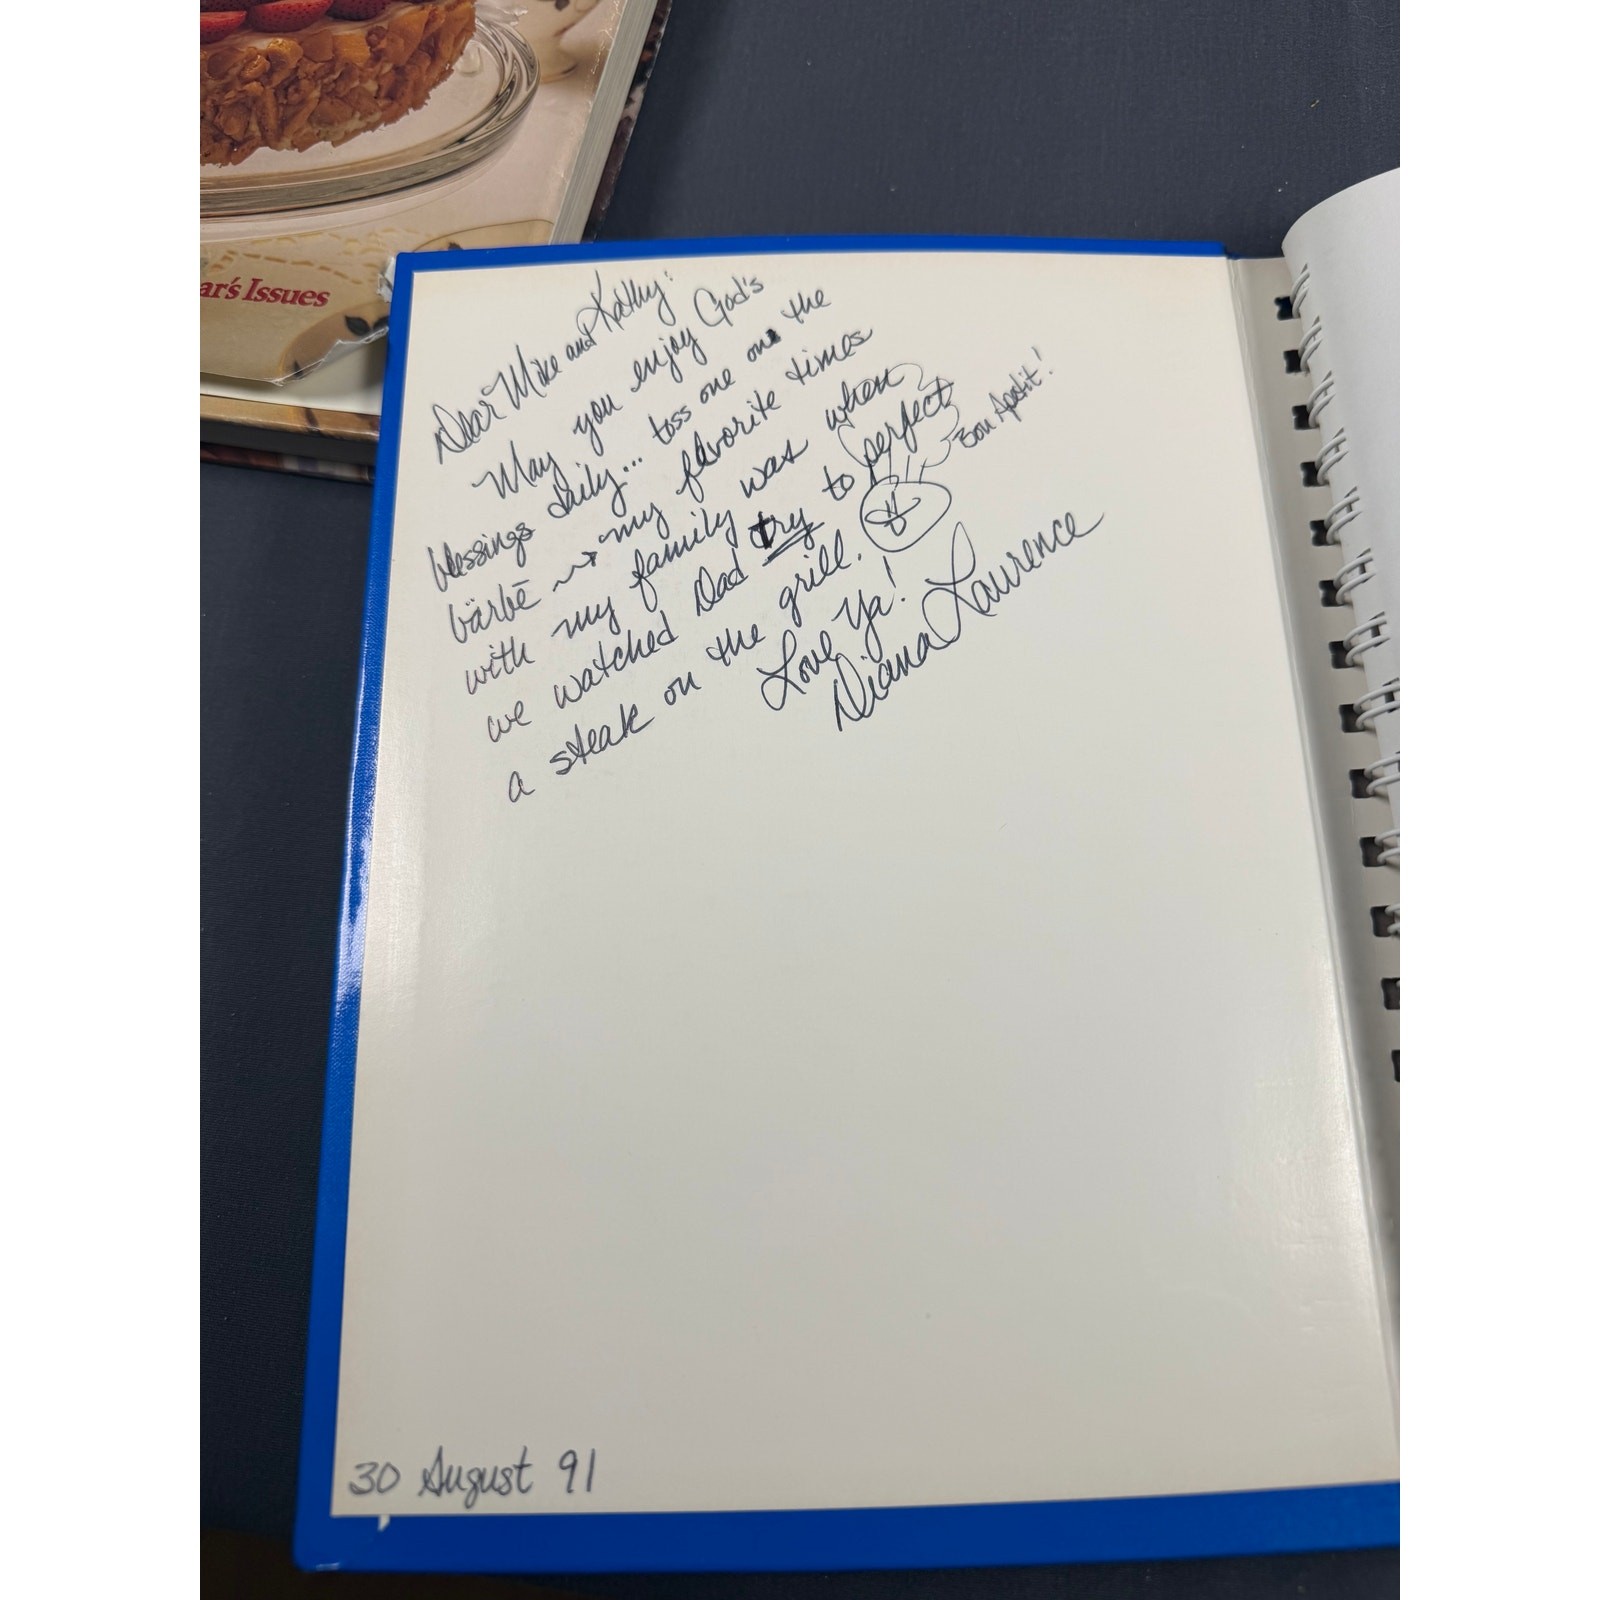 ar's Issues
Dear Mike and Kathy:
May you enjoy God's
blessings daily... toss one on the
bärbē → my favorite times
with my family was when
we watched Dad try to perfect
a steak on the grill.
Bon Apatit!
Love Ya!
Diana Laurence
30 August 91